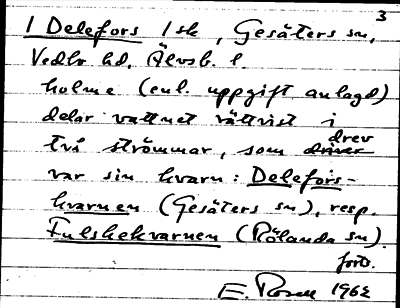 3
I Delefors lsk, Gesäters sn,
Vedbo hd, Älvsb. l.
holme (enl. uppgift anlagd)
delar vattnet rättvist i
drev
två strömmar, som driver
var sin kvarn: Delefors-
kvarnen (Gesäters sn), resp.
Fulshekvarnen (Rölanda sn).
forts.
E. Rosell 1962